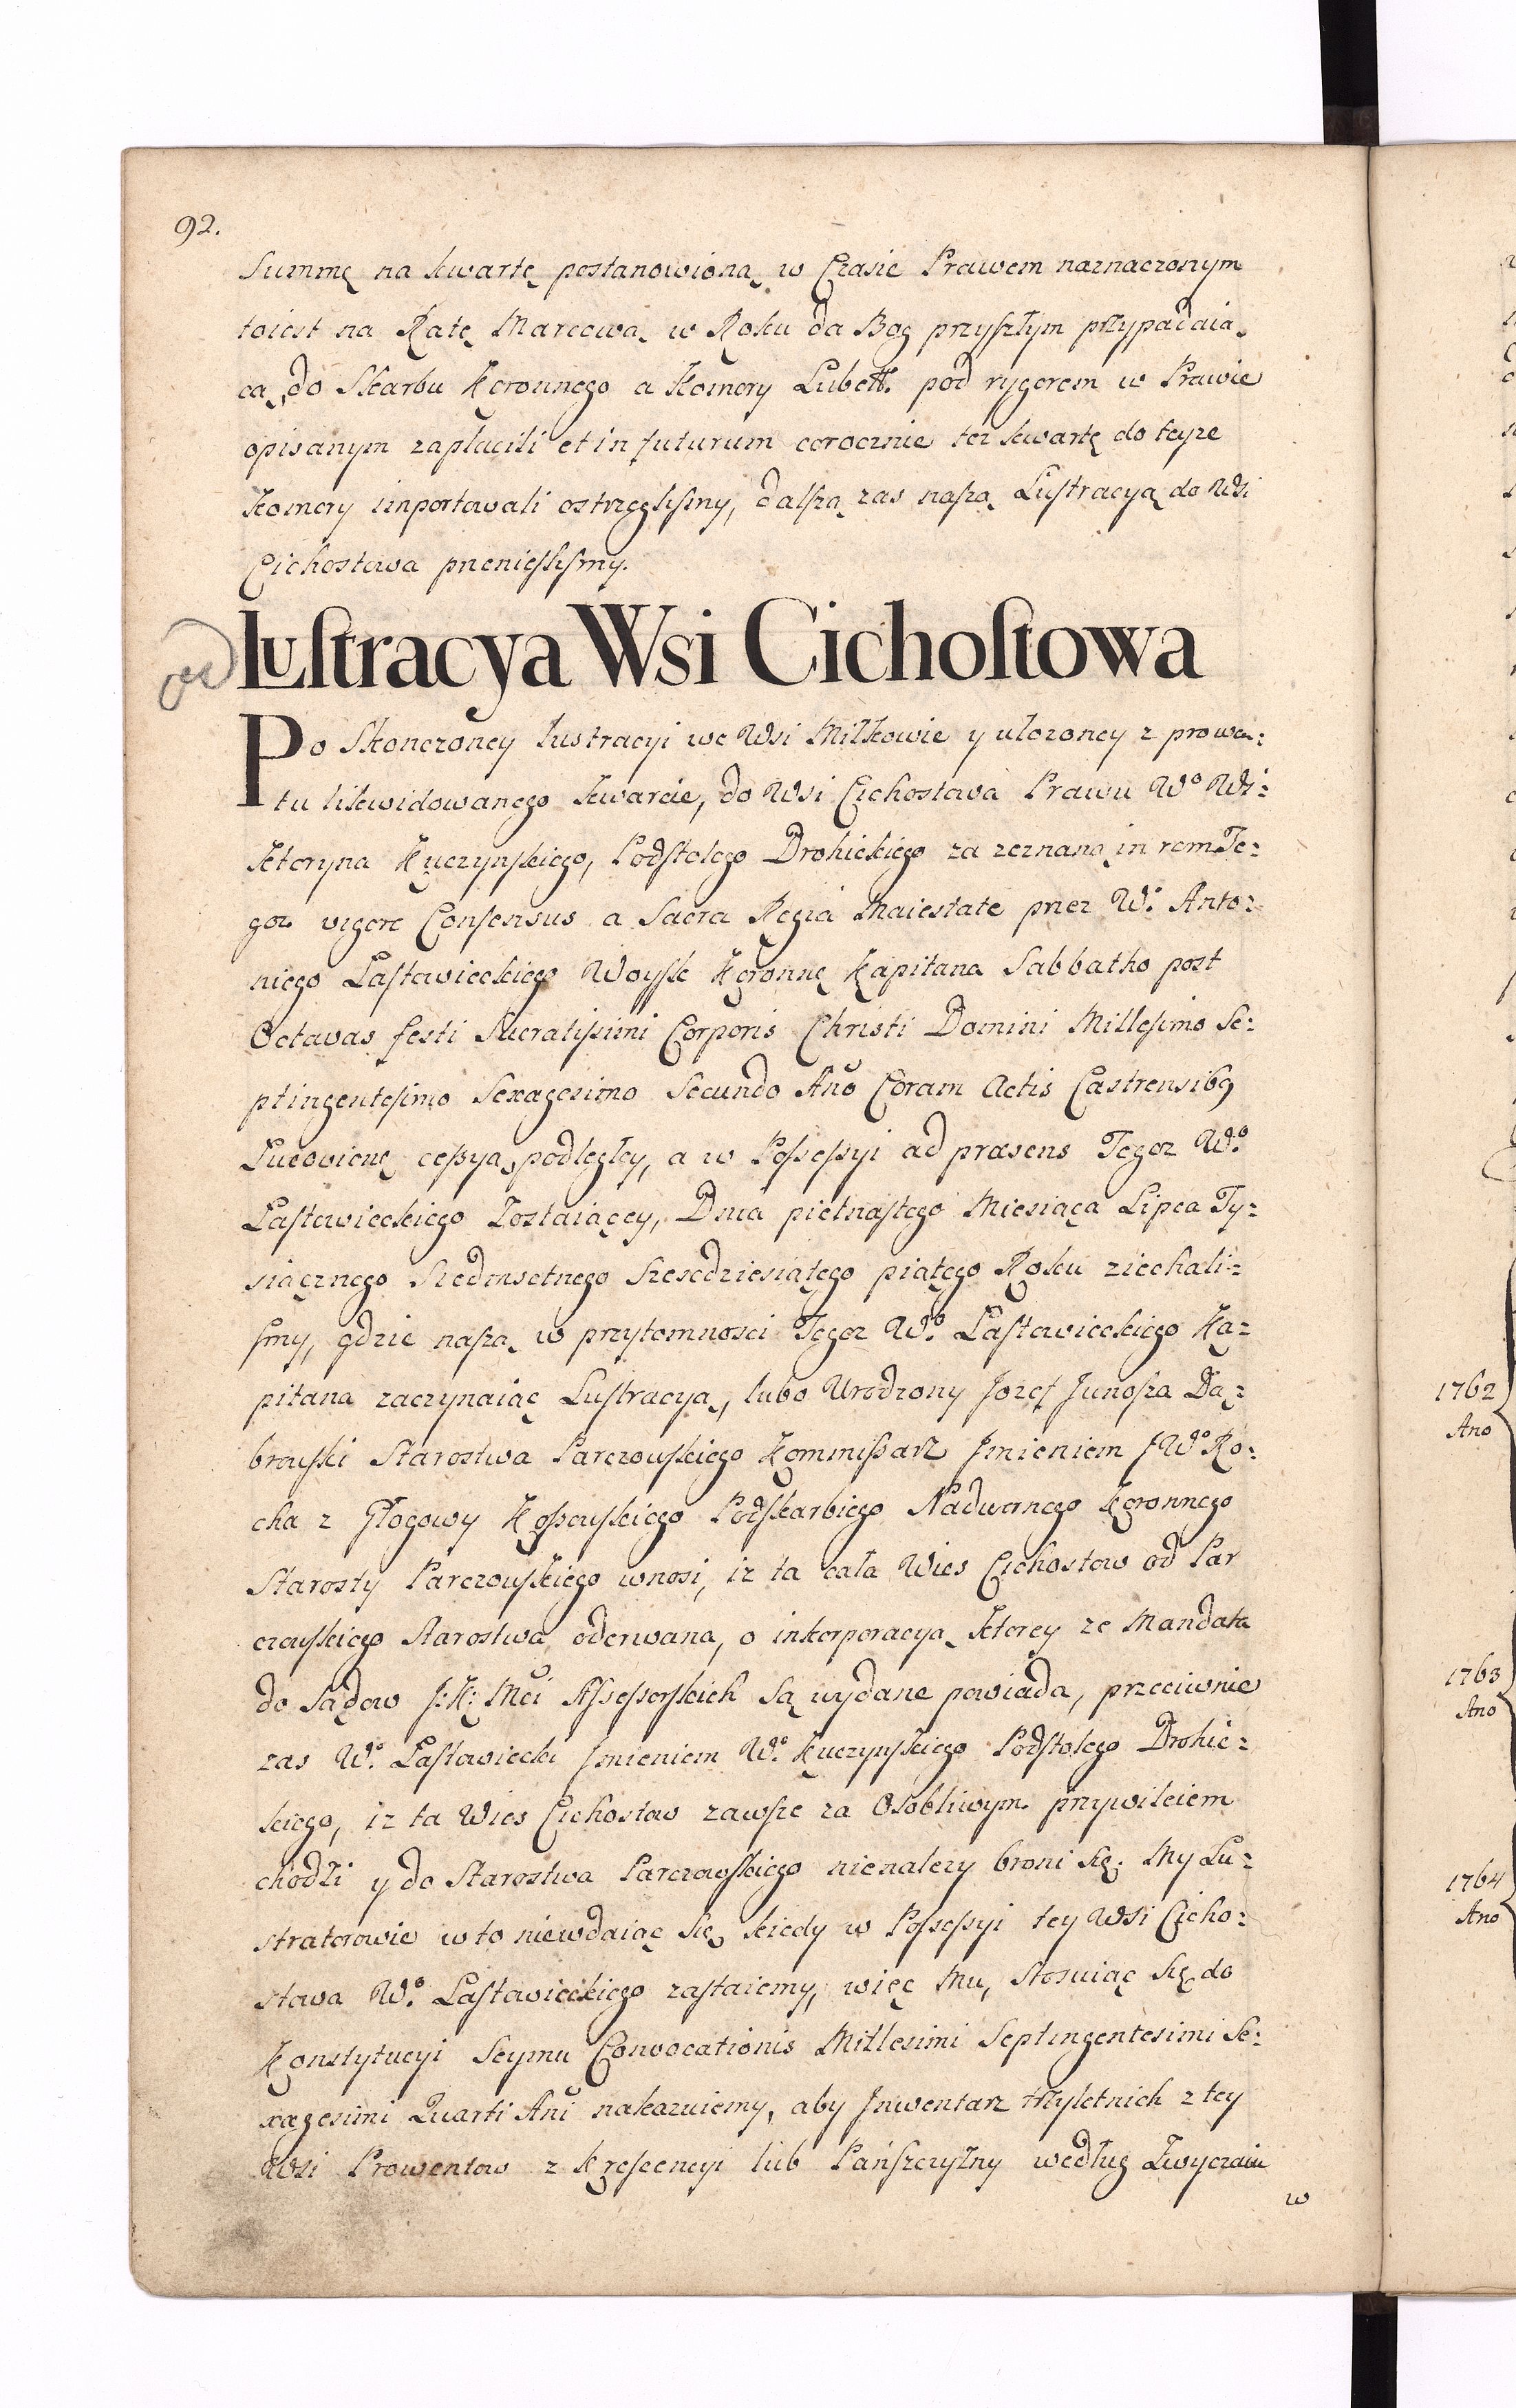 92.
Summę na kwartę postanowioną w Czasie Prawem naznaczonym
toiest na Ratę Marcową w Roku da Bog przyszłym przypadaią„
cą, do Skarbu Koronnego a Komory Lubelt. pod rygorem w Prawie
opisanym zapłacili et in futurum corocznie tez kwartę do teyze
Komory importowali ostrzeglismy, dalszą zas naszą Lustracyą do Wsi
Cichostowa przenieslismy.
Lustracya Wsi Cichostowa
Po Skonczoney lustracyi we Wsi Milkowie y ulozoney z prowen:
tu likwidowanego kwarcie, do Wsi Cichostowa Prawu Wo Wi:
ktoryna Kuczynskiego, Podstolego Drohickiego za zeznaną in rem Te:
goz vigore Consensus a Sacra Regia Maiestate przez Wo. Anto:
niego Lastawieckiego Woysk Koronnę Kapitana Sabbatho post
Octavas festi Sacratissimi Corporis Christi Domini Millesimo Se:
ptingentesimo Sexagesimo Secundo Ano Coram Actis Castrensibq
Lucovienę cessyą podległey, a w Possessyi ad præsens Tegoz Wo.
Lastawieckiego Zostaiącey, Dnia piętnastego Miesiąca Lipca Ty:
siącznego Siedmsetnego Szescdziesiątego piątego Roku ziechali:
smy, gdzie naszą w przytomnosci Tegoz Wo. Lastawieckiego Ka:
pitana zaczynaiąc Lustracyą, lubo Urodzony Jozef Junosza Dą:
browski Starostwa Parczowskiego Kommissarz Jmieniem JWo Ro:
cha z Głogowy Kossowskiego Podskarbiego Nadwornego Koronnego
Starosty Parczowskiego wnosi, iz ta cała Wies Cichostow od Par
czowskiego Starostwa oderwana, o inkorporacyą ktorey ze Mandata
do Sądow J: K: Mci Assessorskich Są wydane powiada, przeciwnie
zas Wo. Lastawiecki Jmieniem Wo. Kuczynskiego Podstolego Drohic:
kiego, iz ta Wies Cichostow zawsze za Osobliwym przywileiem
chodzi y do Starostwa Parczowskiego nienalezy broni się. My Lu:
stratorowie w to niewdaiąc się, kiedy w Possessyi tey Wsi Cicho:
stowa Wo. Lastawieckiego zastaiemy, więc Mu, stosuiąc się do
Konstytucyi Seymu Convocationis Millesimi Septingentesimi Se:
xagesimi Quarti Ani nakazuiemy, aby Jnwentarz trzyletnich z tey
Wsi Prowentow z Krescencyi lub Pańszczyzny według Zwyczaiu
w
1762
Ano
1763
Ano
1764
Ano